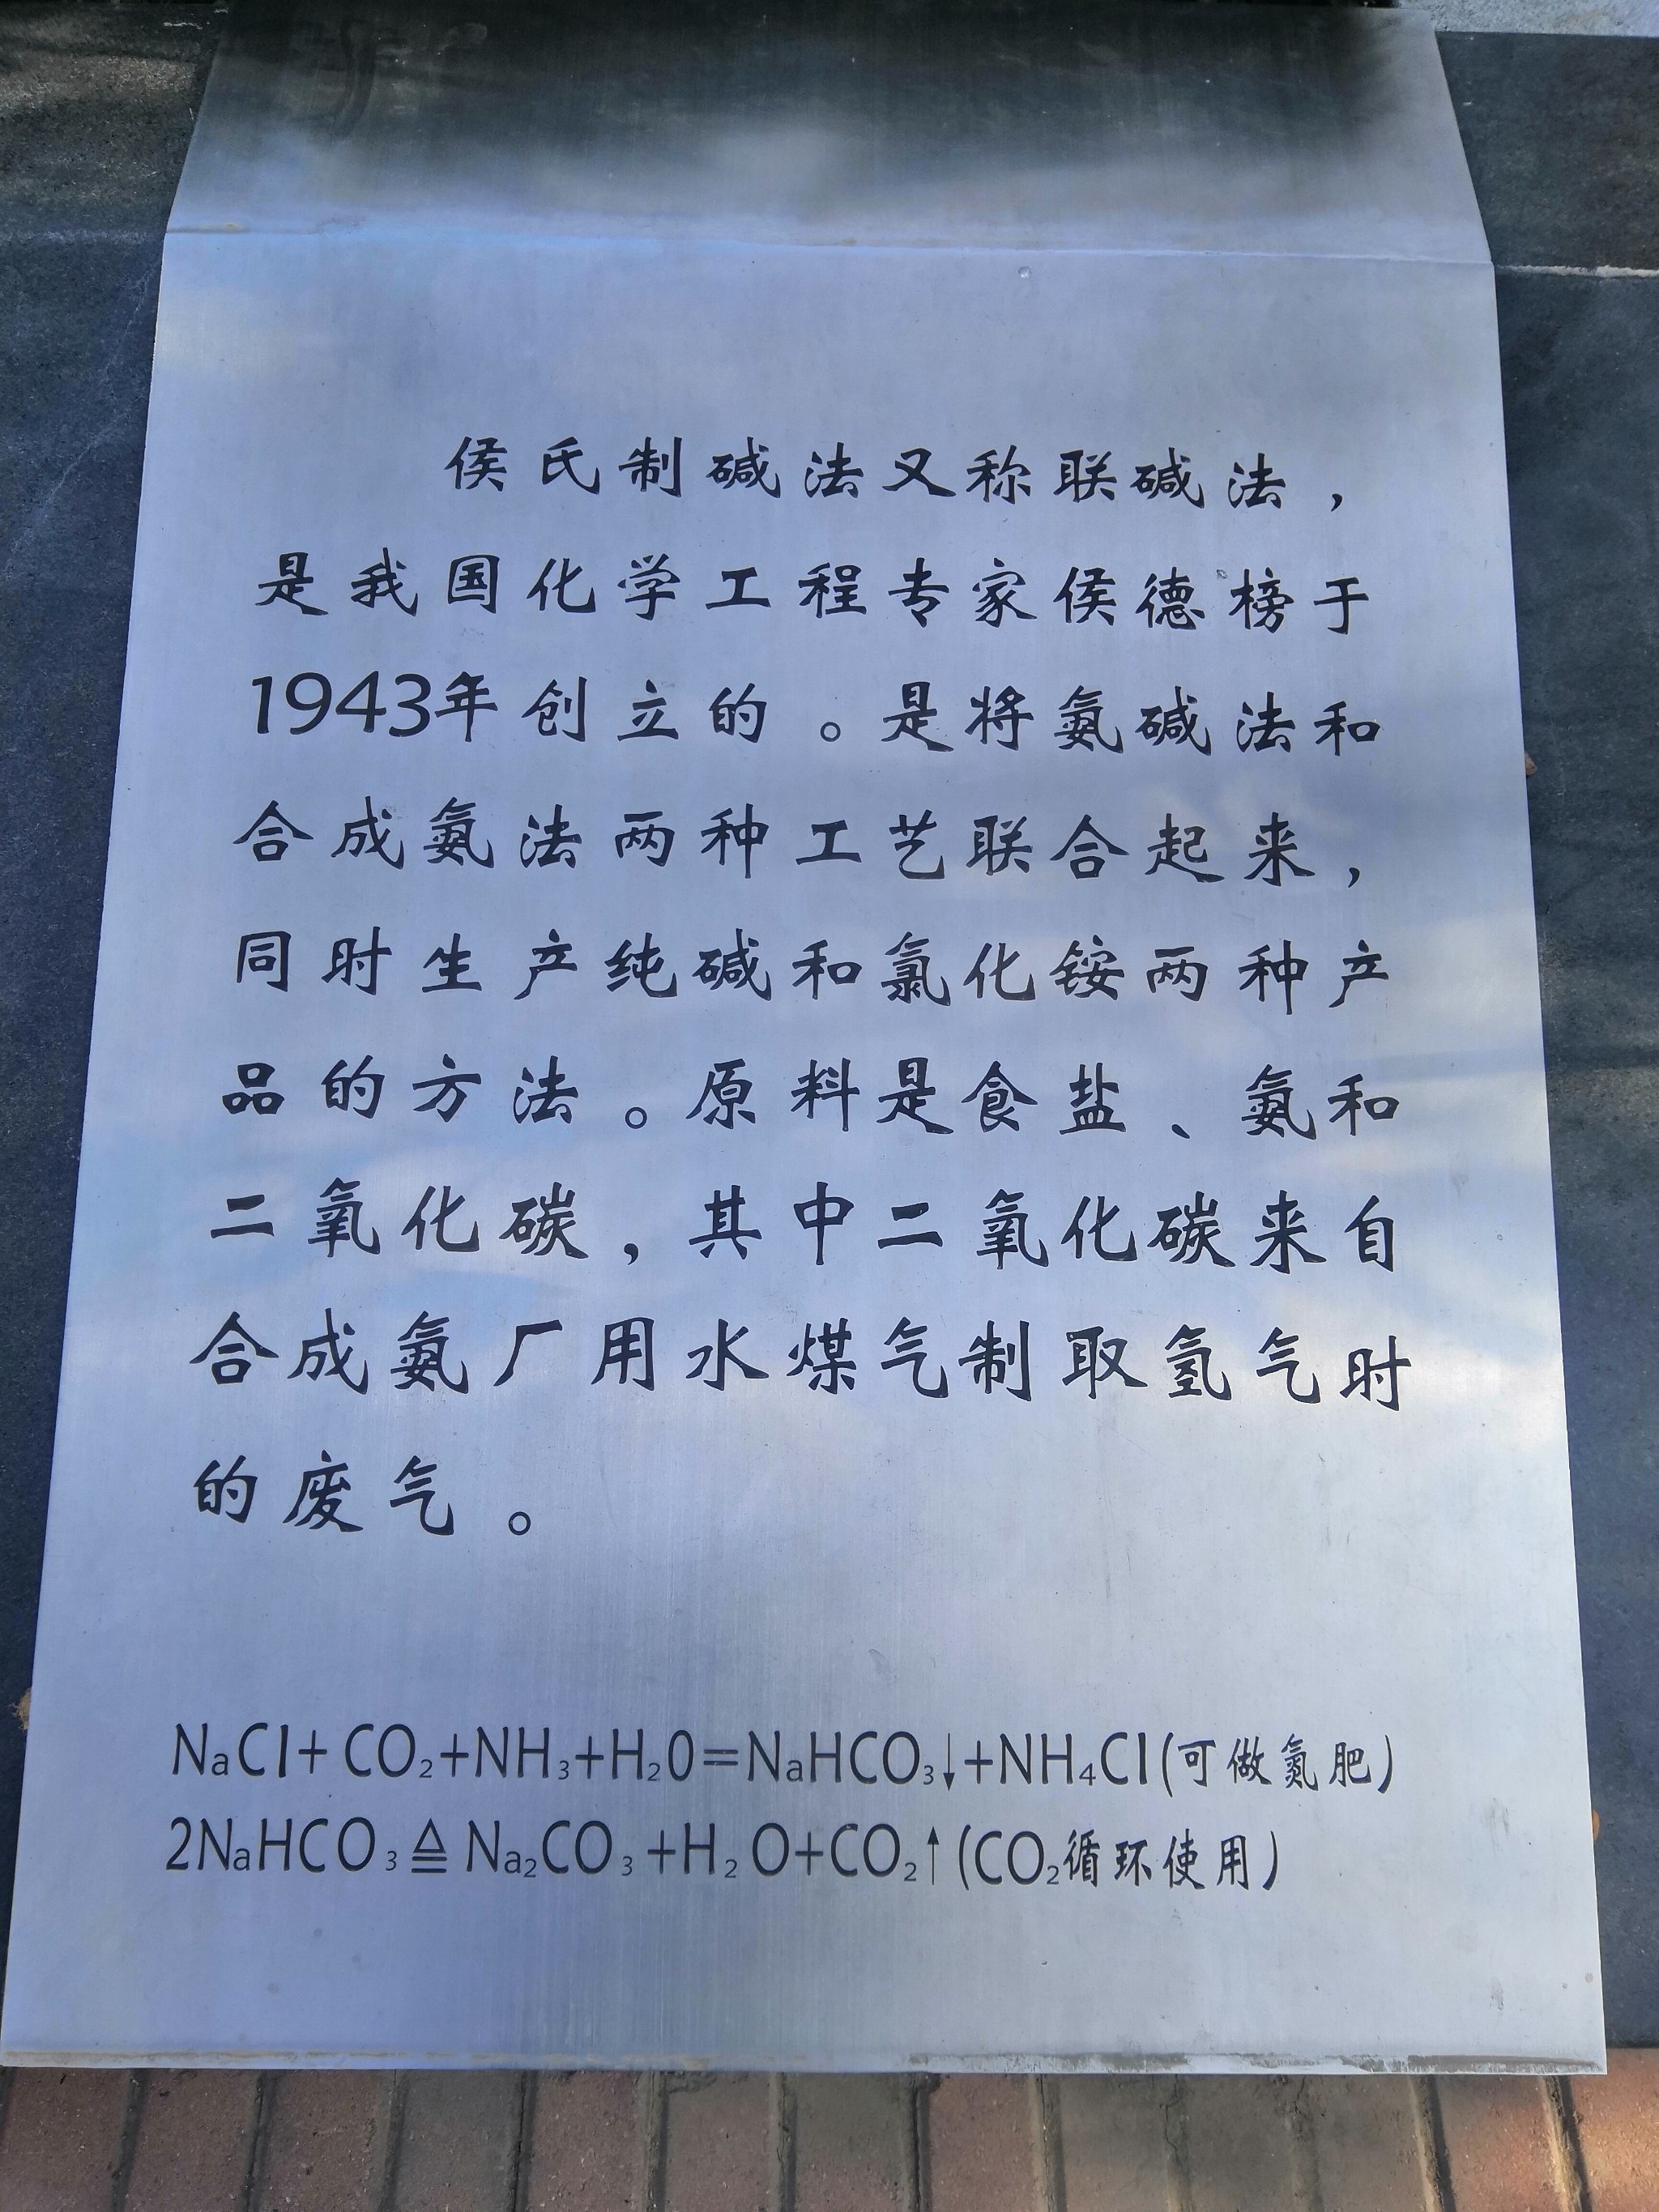 侯氏制碱法又称联碱法，
是我国化学工程专家侯德榜于
1943年创立的。是将氨碱法和
合成氨法两种工艺联合起来，
同时生产纯碱和氯化铵两种产
品的方法。原料是食盐、氨和
二氧化碳，其中二氧化碳来自
合成氨厂用水煤气制取氢气时
的废气。
NaCl+CO₂+NH₃+H₂0=NaHCO₃↓+NH₄Cl(可做氮肥)
2NaHCO₃≙Na₂CO₃+H₂O+CO₂↑(CO₂循环使用)